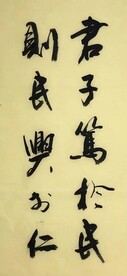 君子篤於民
則民興於仁